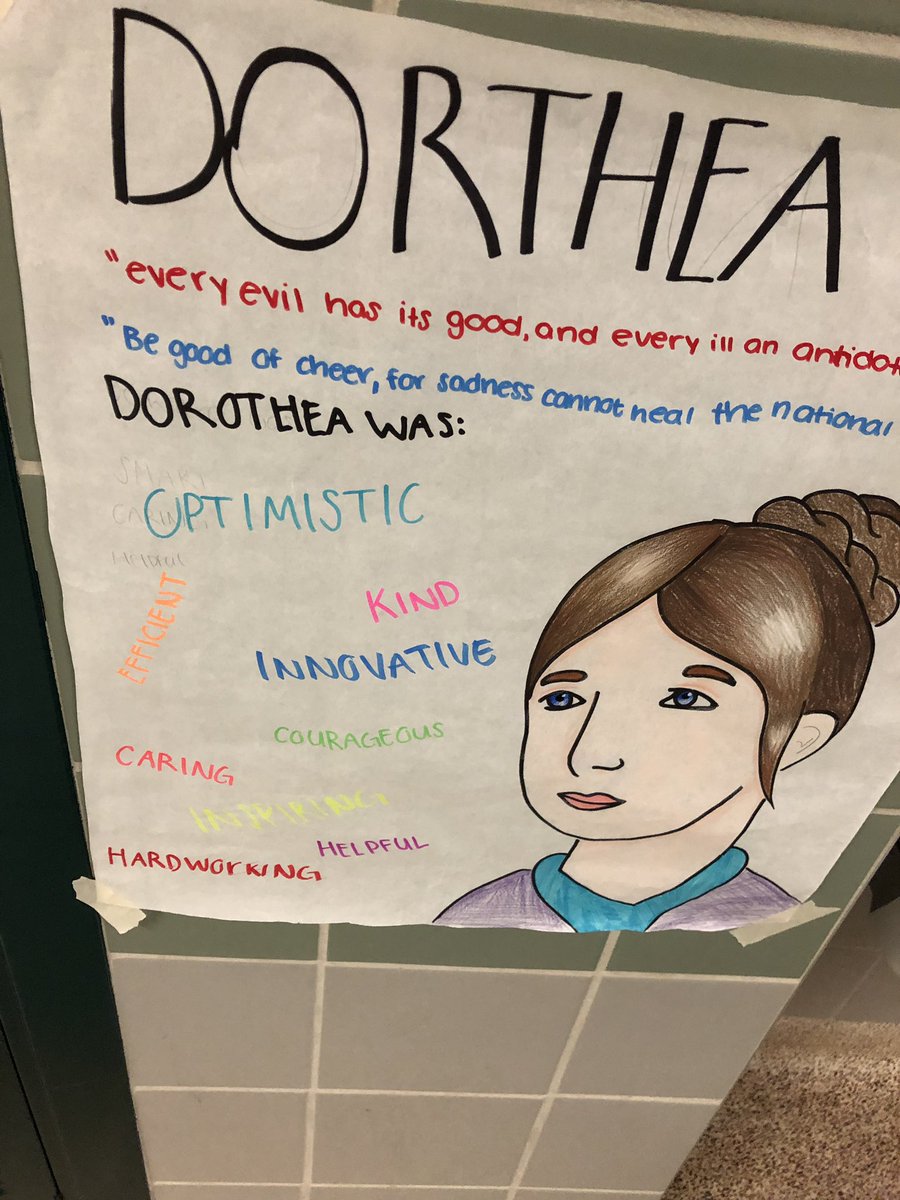 DORTHEA
"every evil has its good, and every ill an antidot
"Be good of cheer, for sadness cannot heal the national
DOROTHEA WAS:
SMART
CARING
OPTIMISTIC
Helpful
EFFICIENT
KIND
INNOVATIVE
COURAGEOUS
CARING
INSPIRING
HELPFUL
HARDWORKING